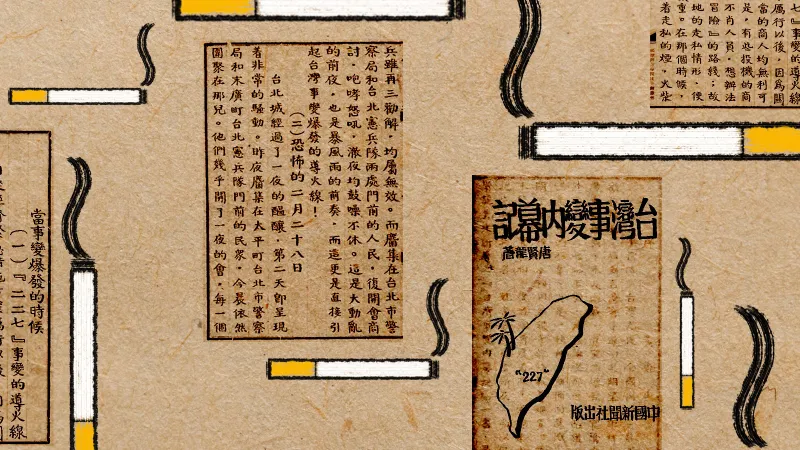 七』事變的導火線
厲行以後，因為關
當的商人均無利可
是，有些投機的商
不肖人員，想辦法
冒險』的路綫；故
地的走私情形，後
重。在那個時候，
着走私的煙，火柴
兵雖再三勸解，均屬無效。而麕集在台北市警
察局和台北憲兵隊兩處門前的人民，復開會商
討，咆哮怒吼，澈夜均鼓噪不休。這是大動亂
的前夜，也是暴風雨的前奏，而這更是直接引
起台灣事變爆發的導火線！
（二）恐怖的二月二十八日
台北城經過了一夜的醞釀，第二天即呈現
着非常的騷動。昨夜麕集在太平町台北市警察
局和末廣町台北憲兵隊門前的民眾，今晨依然
團聚在那兒。他們幾乎開了一夜的會，每一個
當事變爆發的時候
（一）『二二七』事變的導火線
台灣事變內幕記
唐賢龍著
"227"
中國新聞社出版